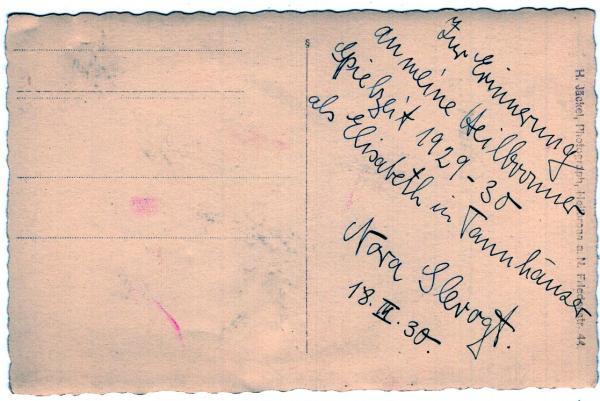 Zur Erinnerung
an meine Heilbronner
Spielzeit 1929-30
als Elisabeth in Tannhäuser
Nora Slevogt.
18. III. 30.
H. Jäckel, Photograph, Heilbronn a. N. Friedenstr. 44
§